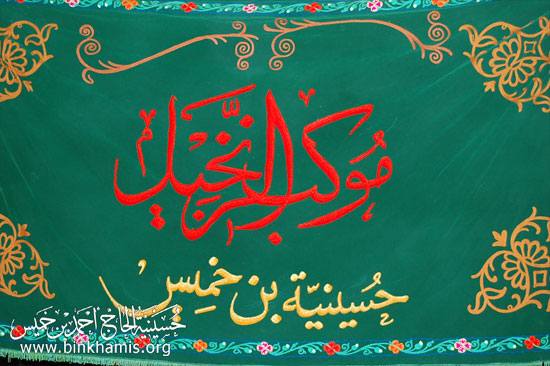 موكب الزنجيل
حسينية بن خميس
حسينية الحاج أحمد بن خميس
www.binkhamis.org